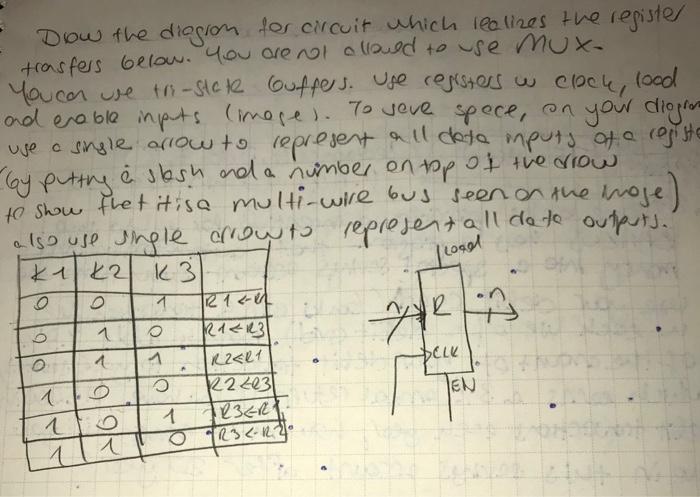 Draw the diagram for circuit which realizes the register
transfers below. You are not allowed to use MUX.
You can use tri-state buffers. Use registers w clock, load
and enable inputs (image). To save space, on your diagram
use a single arrow to represent all data inputs of a registe
(by putting a slash and a number on top of the arrow
to show that it is a multi-wire bus seen on the image)
also use single arrow to represent all data outputs.
K1 K2 K3
0 0 1 R1←
0 1 0 R1←R3
0 1 1 R2←R1
1 0 0 R2←R3
1 0 1 R3←R1
1 1 0 R3←R2
Load
n R n
CLK
EN